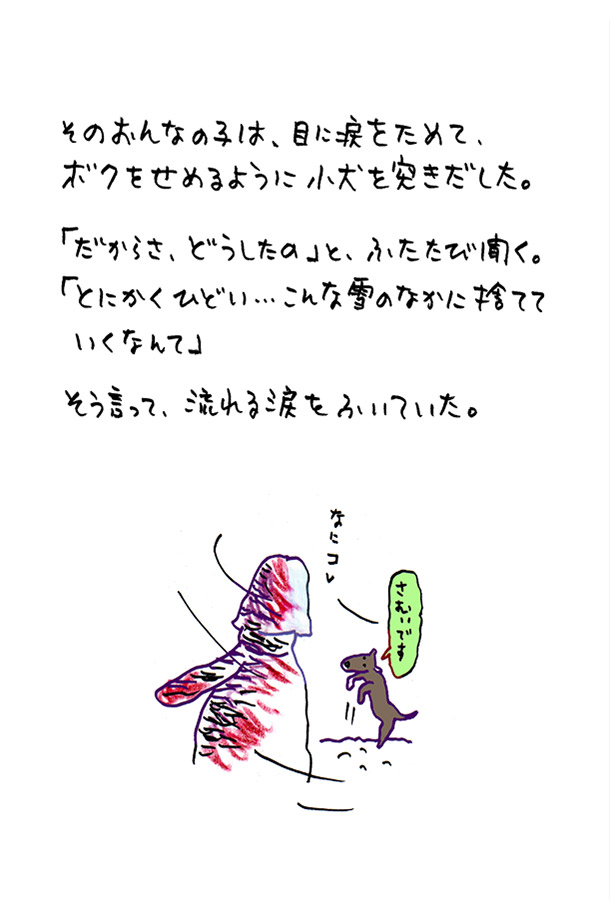 そのおんなの子は、目に涙をためて、
ボクをせめるように小犬を突きだした。
「だからさ、どうしたの」と、ふたたび聞く。
「とにかくひどい…こんな雪のなかに捨てて
いくなんて」
そう言って、流れる涙をふいていた。
なにコレ
さむいです